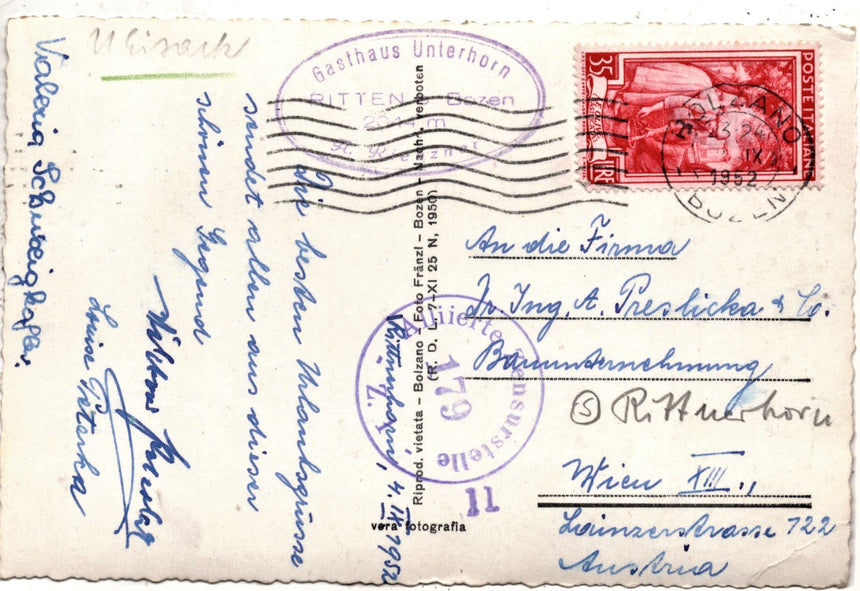 Gasthaus Unterhorn
RITTEN b. Bozen
2044 m
35
POSTE ITALIANE
LIRE
BOLZANO
23-24
IX
1952
BOZEN
Rittnerhorn, 4. IX. 1952
Die besten Urlaubsgrüsse
sendet allen aus dieser
schönen Gegend
Luise
Valeria Schweighofer
Riprod. vietata - Bolzano - Foto Fränzl - Bozen - Nachr. verboten
(R. D. L. 7-XI 25 N, 1950)
vera fotografia
Alliierte Zensurstelle
179
- Z. -
11
An die Firma
Dr. Ing. A. Preslicka & Co.
Bauunternehmung
(S) Rittnerhorn
Wien XIII.,
Lainzerstrasse 122
Austria